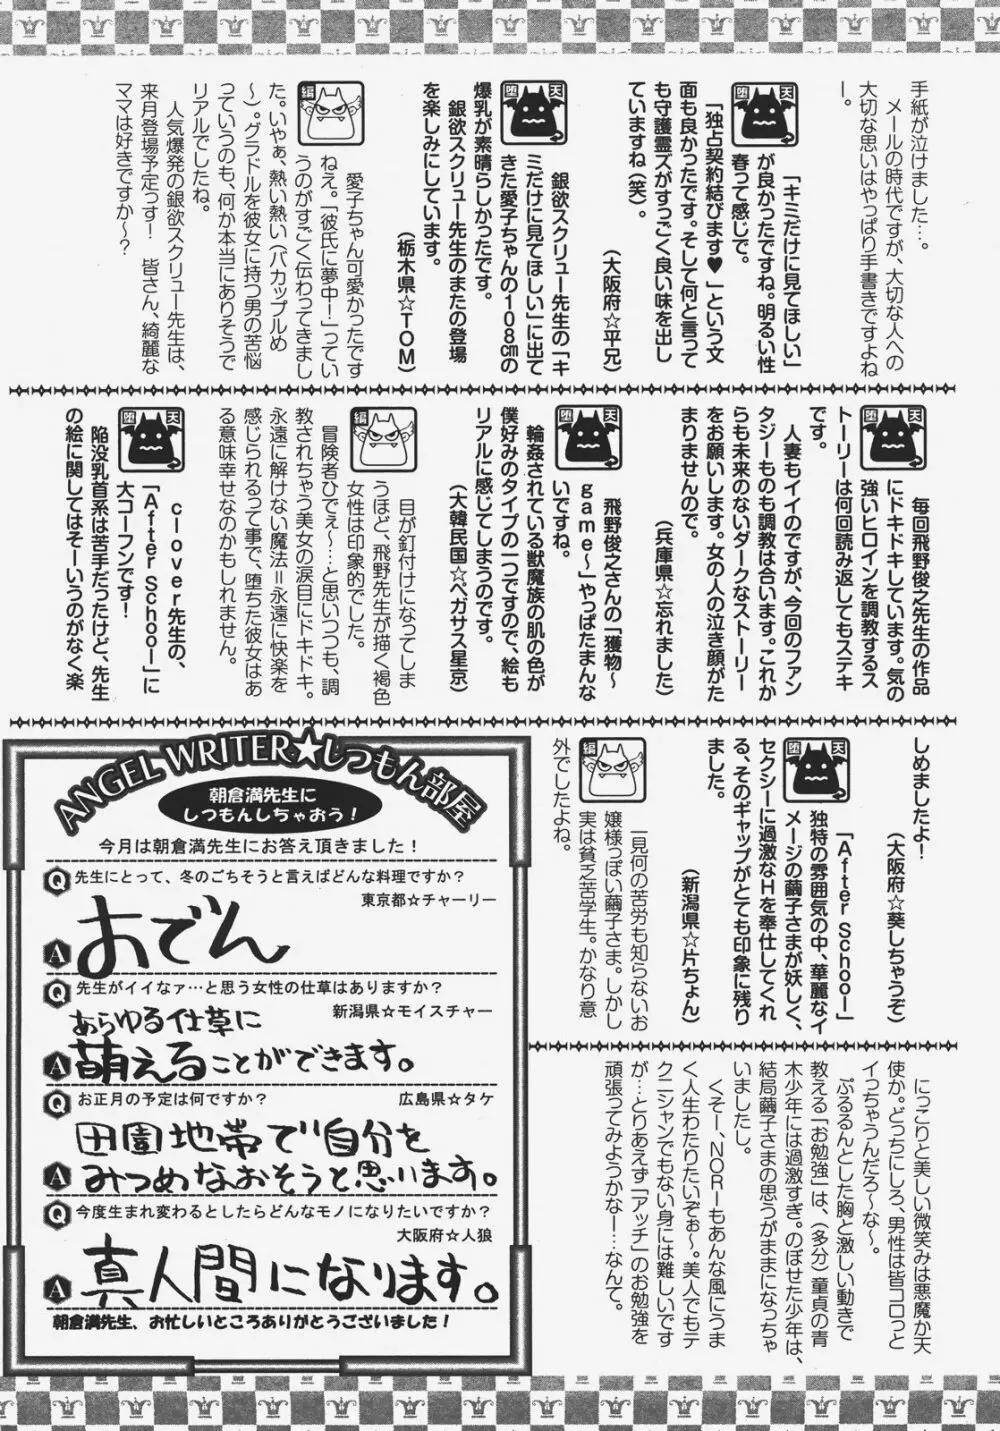 手紙が泣けました…。
メールの時代ですが、大切な人への
大切な思いはやっぱり手書きですよね
ー。
堕 天
「キミだけに見てほしい」
が良かったですね。明るい性
春って感じで。
「独占契約結びます♥」という文
面も良かったです。そして何と言って
も守護霊ズがすっごく良い味を出し
ていますね(笑)。
(大阪府☆平兄)
堕 天
銀欲スクリュー先生の「キ
ミだけに見てほしい」に出て
きた愛子ちゃんの108㎝の
爆乳が素晴らしかったです。
銀欲スクリュー先生のまたの登場
を楽しみにしています。
(栃木県☆TOM)
編
愛子ちゃん可愛かったです
ねえ。「彼氏に夢中!」ってい
うのがすごく伝わってきまし
た。いやぁ、熱い熱い(バカップルめ
〜)。グラドルを彼女に持つ男の苦悩
っていうのも、何か本当にありそうで
リアルでしたね。
人気爆発の銀欲スクリュー先生は、
来月登場予定っす! 皆さん、綺麗な
ママは好きですか〜?
堕 天
毎回飛野俊之先生の作品
にドキドキしています。気の
強いヒロインを調教するス
トーリーは何回読み返してもステキ
です。
人妻もイイのですが、今回のファン
タジーものも調教は合います。これか
らも未来のないダークなストーリー
をお願いします。女の人の泣き顔がた
まりませんので。
(兵庫県☆忘れました)
堕 天
飛野俊之さんの「獲物〜
game〜」やっぱたまんな
いですね。
輪姦されている獣魔族の肌の色が
僕好みのタイプの一つですので、絵も
リアルに感じてしまうのです。
(大韓民国☆ペガサス星京)
編
目が釘付けになってしま
うほど、飛野先生が描く褐色
女性は印象的でした。
冒険者ひでぇ〜…と思いつつも、調
教されちゃう美女の涙目にドキドキ。
永遠に解けない魔法＝永遠に快楽を
感じられるって事で、堕ちた彼女はあ
る意味幸せなのかもしれません。
堕 天
clover先生の、
「After School」に
大コーフンです!
陥没乳首系は苦手だったけど、先生
の絵に関してはそーいうのがなく楽
しめましたよ!
(大阪府☆葵しちゃうぞ)
堕 天
「After School」
独特の雰囲気の中、華麗なイ
メージの繭子さまが妖しく、
セクシーに過激なHを奉仕してくれ
る、そのギャップがとても印象に残り
ました。
(新潟県☆片ちょん)
編
一見何の苦労も知らないお
嬢様っぽい繭子さま。しかし
実は貧乏苦学生。かなり意
外でしたよね。
にっこりと美しい微笑みは悪魔か天
使か。どっちにしろ、男性は皆コロっと
イっちゃうんだろ〜な〜。
ぷるるんとした胸と激しい動きで
教える「お勉強」は、(多分)童貞の青
木少年には過激すぎ。のぼせた少年は、
結局繭子さまの思うがままになっちゃ
いましたし。
くそー、NORIもあんな風にうま
く人生わたりたいぞぉ〜。美人でもテ
クニシャンでもない身には難しいです
が…とりあえず「アッチ」のお勉強を
頑張ってみようかなー…なんて。
ANGEL WRITER★しつもん部屋
朝倉満先生に
しつもんしちゃおう!
今月は朝倉満先生にお答え頂きました!
Q 先生にとって、冬のごちそうと言えばどんな料理ですか?
東京都☆チャーリー
A おでん
Q 先生がイイなァ…と思う女性の仕草はありますか?
新潟県☆モイスチャー
あらゆる仕草に
A 萌えることができます。
Q お正月の予定は何ですか? 広島県☆タケ
田園地帯で自分を
A みつめなおそうと思います。
Q 今度生まれ変わるとしたらどんなモノになりたいですか?
大阪府☆人狼
A 真人間になります。
朝倉満先生、お忙しいところありがとうございました!